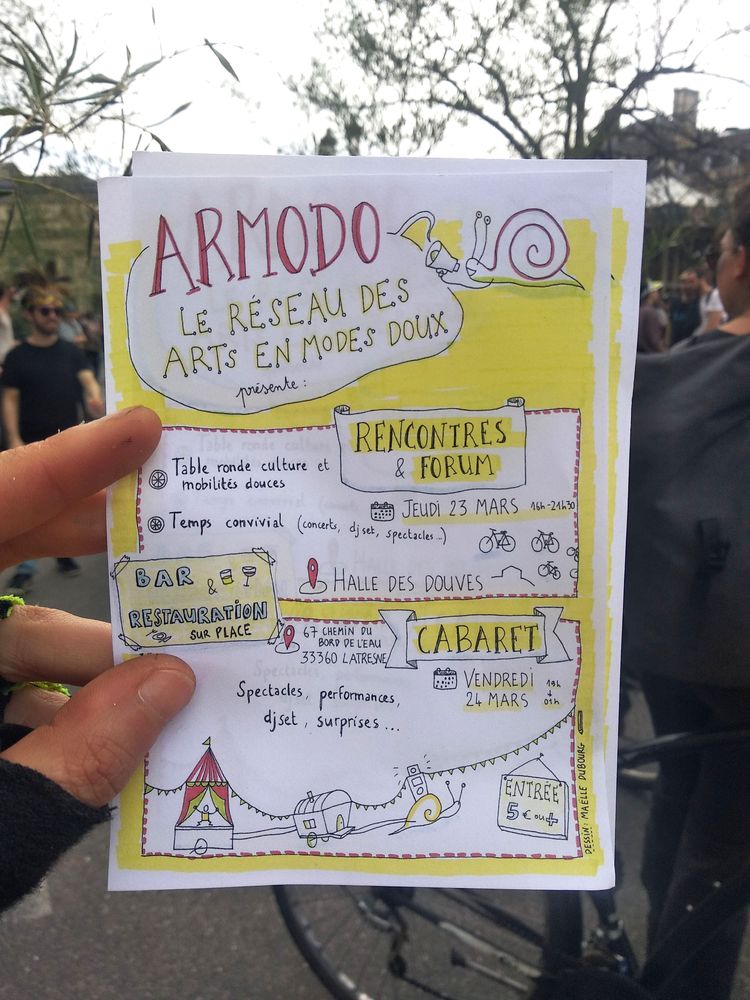 ARMODO
LE RÉSEAU DES
ARTS EN MODES DOUX
présente :
RENCONTRES
& FORUM
Table ronde culture et
mobilités douces
JEUDI 23 MARS 16h-21h30
Temps convivial (concerts, djset, spectacles...)
HALLE DES DOUVES
BAR &
RESTAURATION
SUR PLACE
67 CHEMIN DU
BORD DE L'EAU
33360 LATRESNE
CABARET
VENDREDI
24 MARS
19h
01h
Spectacles, performances,
djset, surprises...
ENTRÉE
5 € ou +
DESSIN : MAËLLE DUBOURG